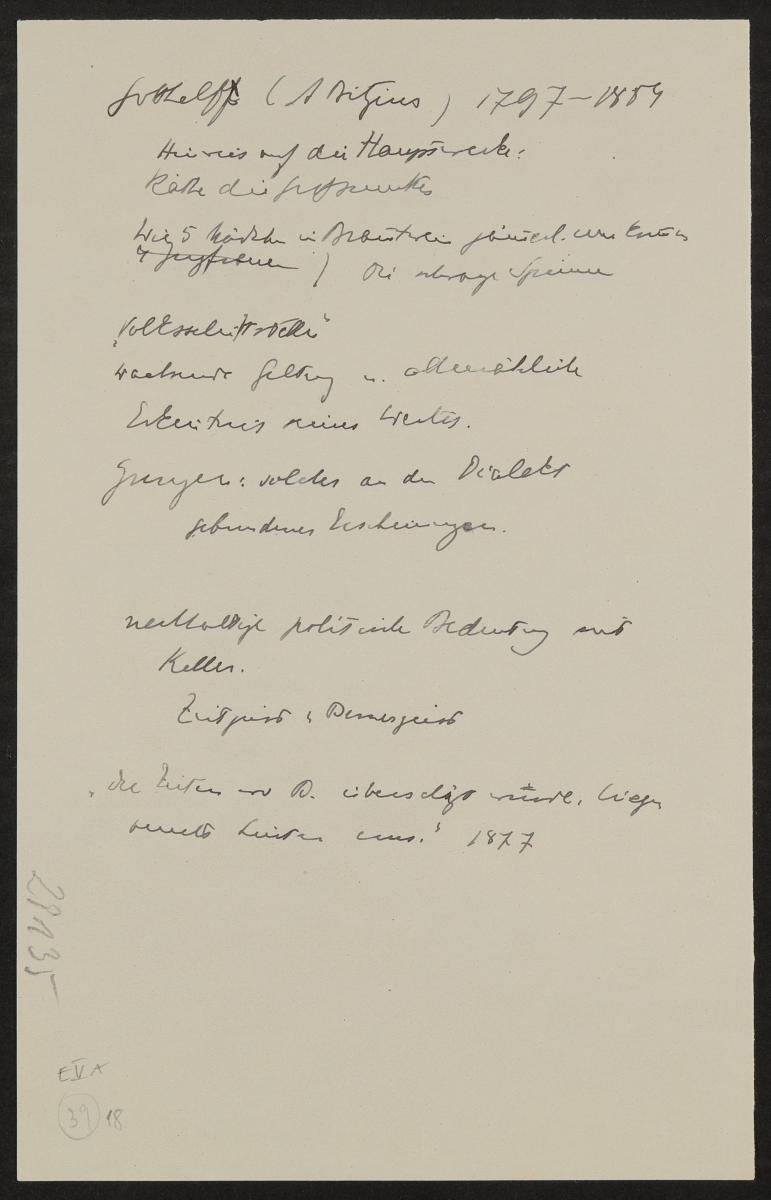 Gotthelf (A Bitzius) 1797–1854
Hinweis auf die Hauptwerke:
Käthe die Großmutter
Wie 5 Mädchen in Branntwein jämmerl. umkommen
4 Jungfrauen ) Die schwarze Spinne
„Volksschriftsteller“
wachsende Geltung u. allmähliche
Erkenntnis seines Wertes.
Grenzen: solcher an den Dialekt
gebundenen Erscheinungen.
nachhaltige politische Bedeutung mit
Keller.
Zeitgeist u Bernergeist
„die Zeiten wo B. überschätzt wurde, liegen
bereits hinter uns.“ 1877
28135
E V A
39 18